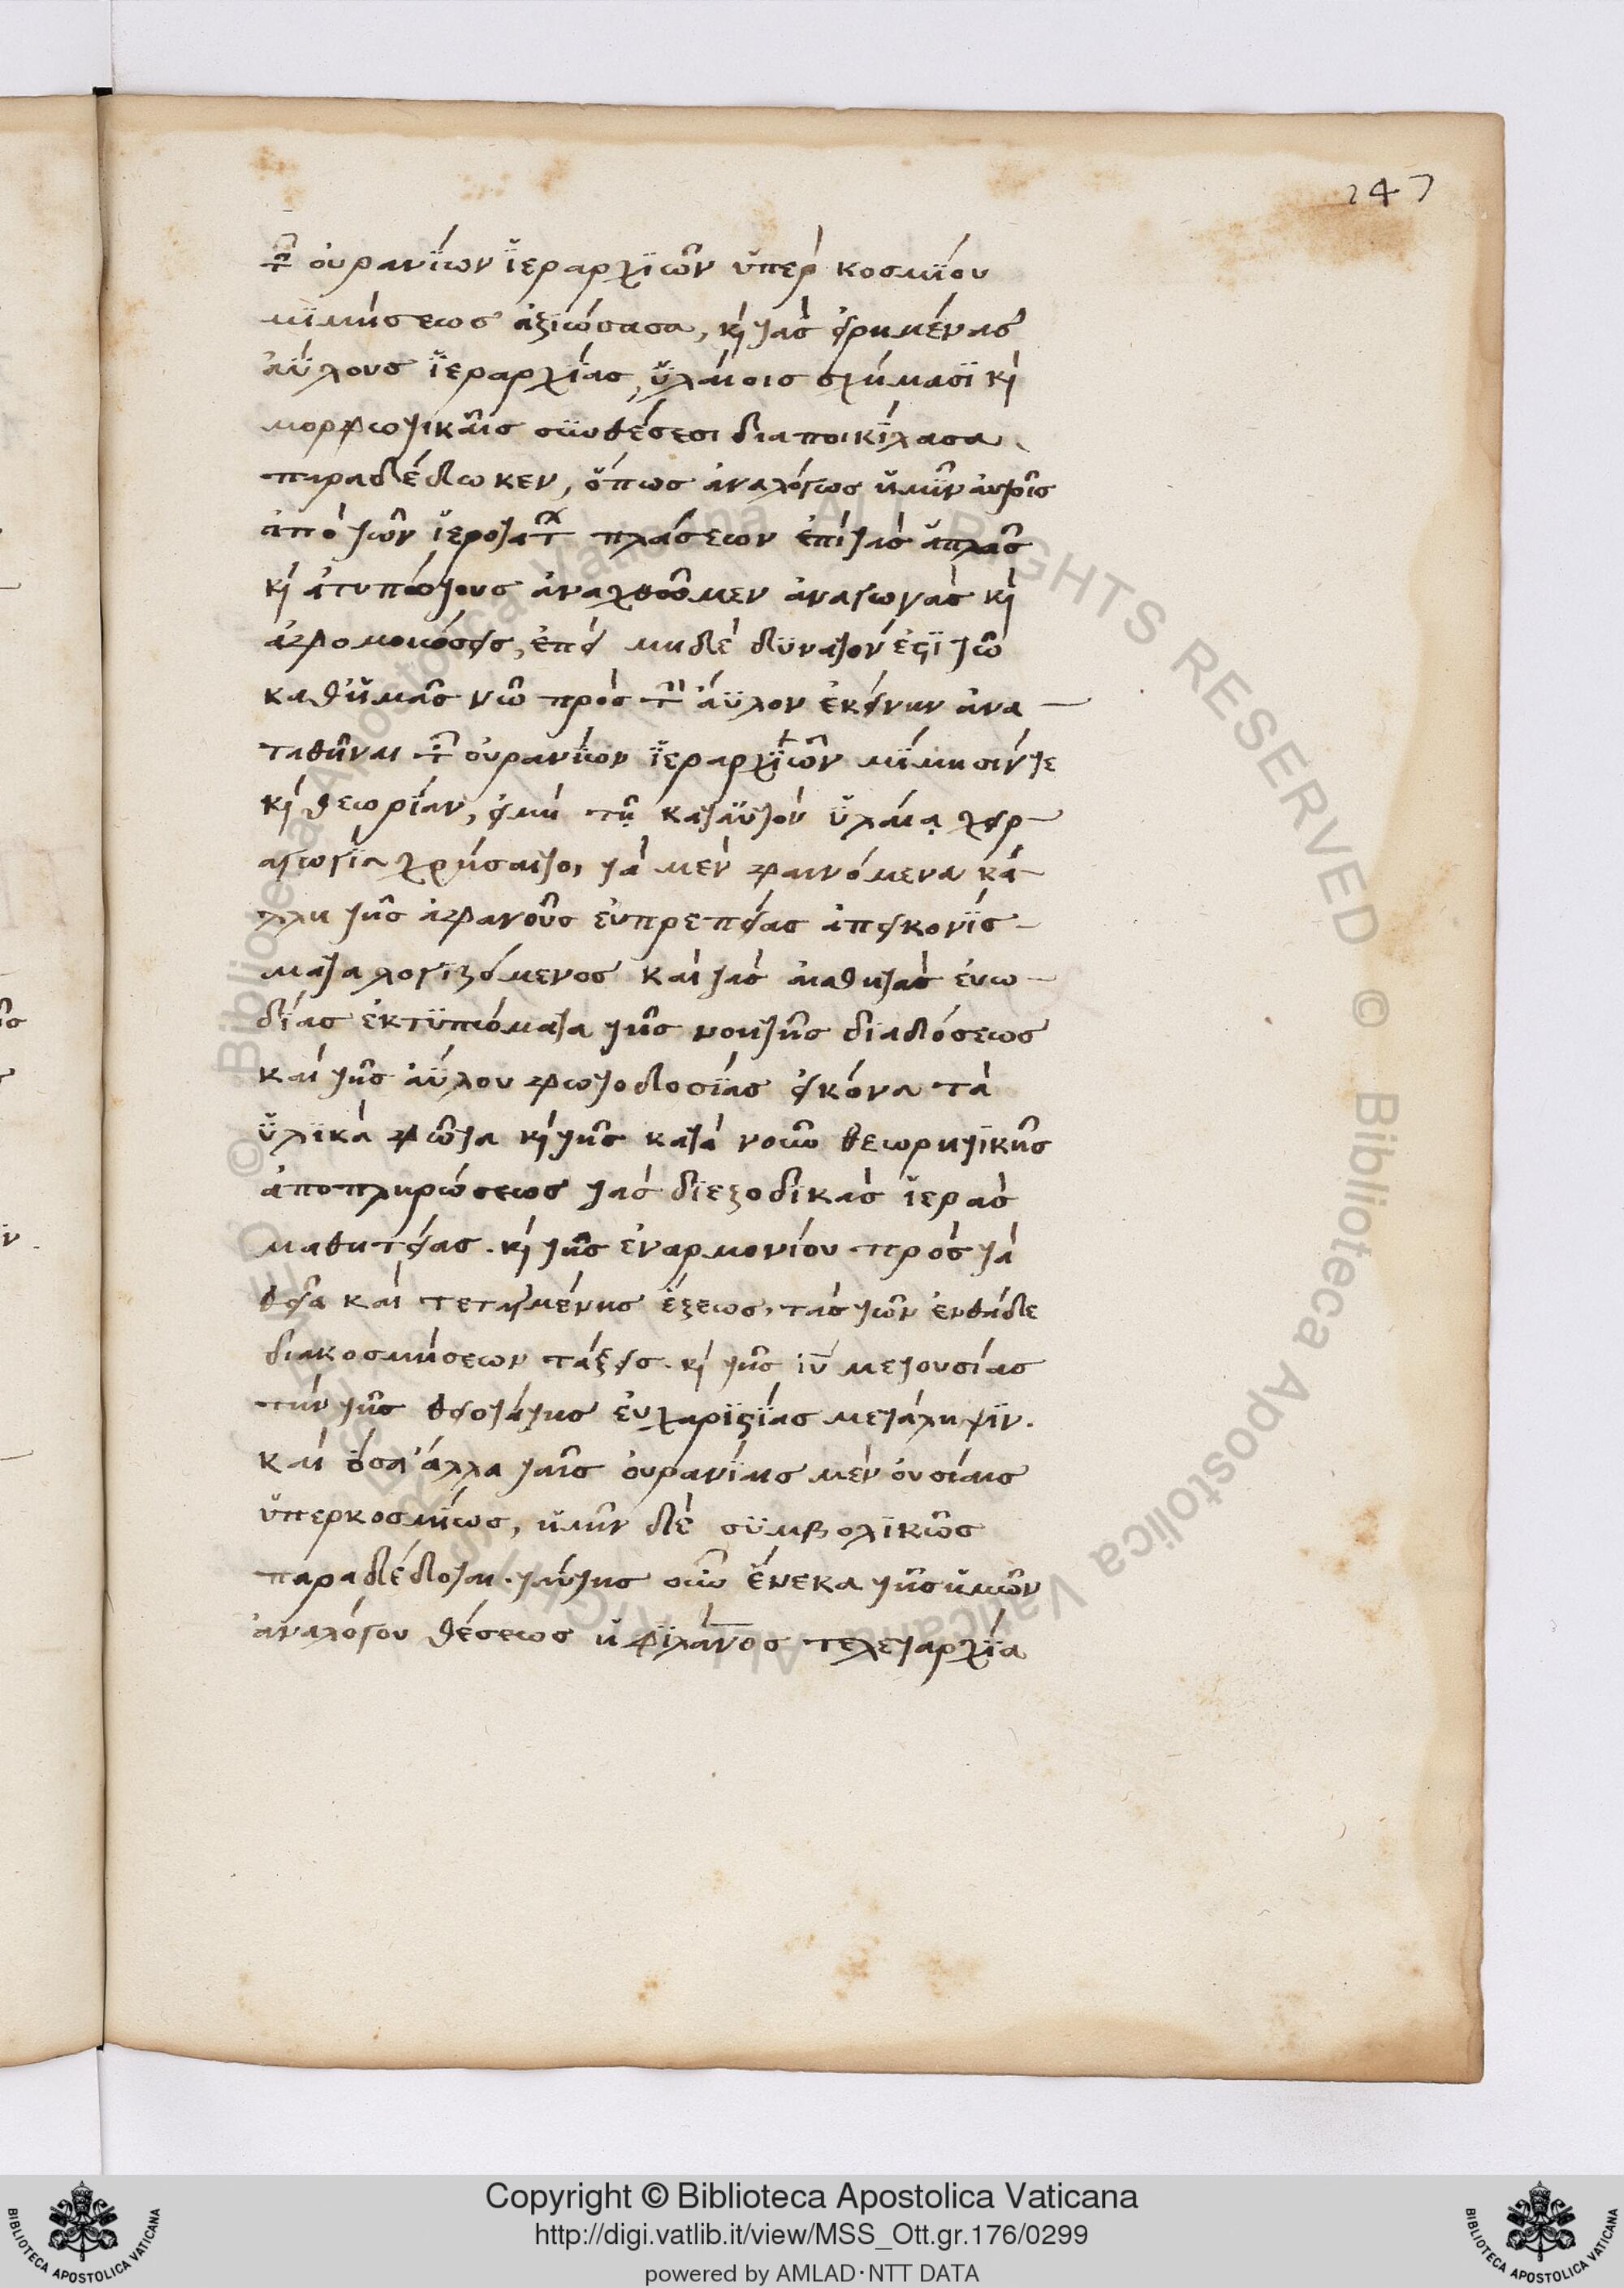 247
τῶν οὐρανΐων ἱεραρχϊῶν ὑπερ κοσμΐου
μϊμήσεως ἀξϊώσασα, καὶ τὰς εἰρημένας
ἀΰλους ἱεραρχΐας, ὑλαίοις σχήμασϊ καὶ
μορφωτικαῖς συνθέσεσι διαποικΐλασα
παραδέδωκεν, ὅπως ἀναλόγως ἡμῖν αὐτοῖς
ἀπὸ τῶν ἱεροτάτων πλάσεων ἐπὶ τὰς ἁπλᾶς
καὶ ἀτυπώτους ἀναχθῶμεν ἀναγωγὰς καὶ
ἀφομοιώσεις, ἐπεὶ μηδὲ δϋνατόν ἐστϊ τῶ
καθ' ἡμᾶς νῶ πρὸς τὴν ἄϋλον ἐκείνην ἀνα
ταθῆναι τῶν οὐρανΐων ἱεραρχϊῶν μΐμησίν τε
καὶ θεωρΐαν, εἰ μὴ τῇ κατ' αὐτὸν ὑλαίᾳ χειρ
αγωγΐα χρήσαιτο, τὰ μὲν φαινόμενα κά
λλη τῆς ἀφανοῦς εὐπρεπείας ἀπεικονΐσ
ματα λογιζόμενος καὶ τὰς αἰσθητὰς εὐω
δΐας ἐκτϋπώματα τῆς νοητῆς διαδόσεως
καὶ τῆς ἀΰλου φωτοδοσΐας εἰκόνα τὰ
ὑλϊκὰ φῶτα καὶ τῆς κατὰ νοῦν θεωρητϊκῆς
ἀποπληρώσεως τὰς δϊεξοδϊκὰς ἱερὰς
μαθητείας. καὶ τῆς ἐναρμονίου πρὸς τὰ
θεῖα καὶ τεταγμένης ἕξεως, τὰς τῶν ἐνθάδε
διακοσμήσεων τάξεις. καὶ τῆς ἰῦ μετουσίας
τὴν τῆς θειοτάτης εὐχαρϊστΐας μετάληψϊν.
καὶ ὅσα ἄλλα ταῖς οὐρανΐαις μὲν οὐσίαις
ὑπερκοσμΐως, ἡμῖν δὲ σϋμβολϊκῶς
παραδέδοται. ταύτης οὖν ἕνεκα τῆς ἡμῶν
ἀναλόγου θέσεως ἡ φϊλᾱνος τελεταρχΐα
Copyright © Biblioteca Apostolica Vaticana
http://digi.vatlib.it/view/MSS_Ott.gr.176/0299
powered by AMLAD·NTT DATA